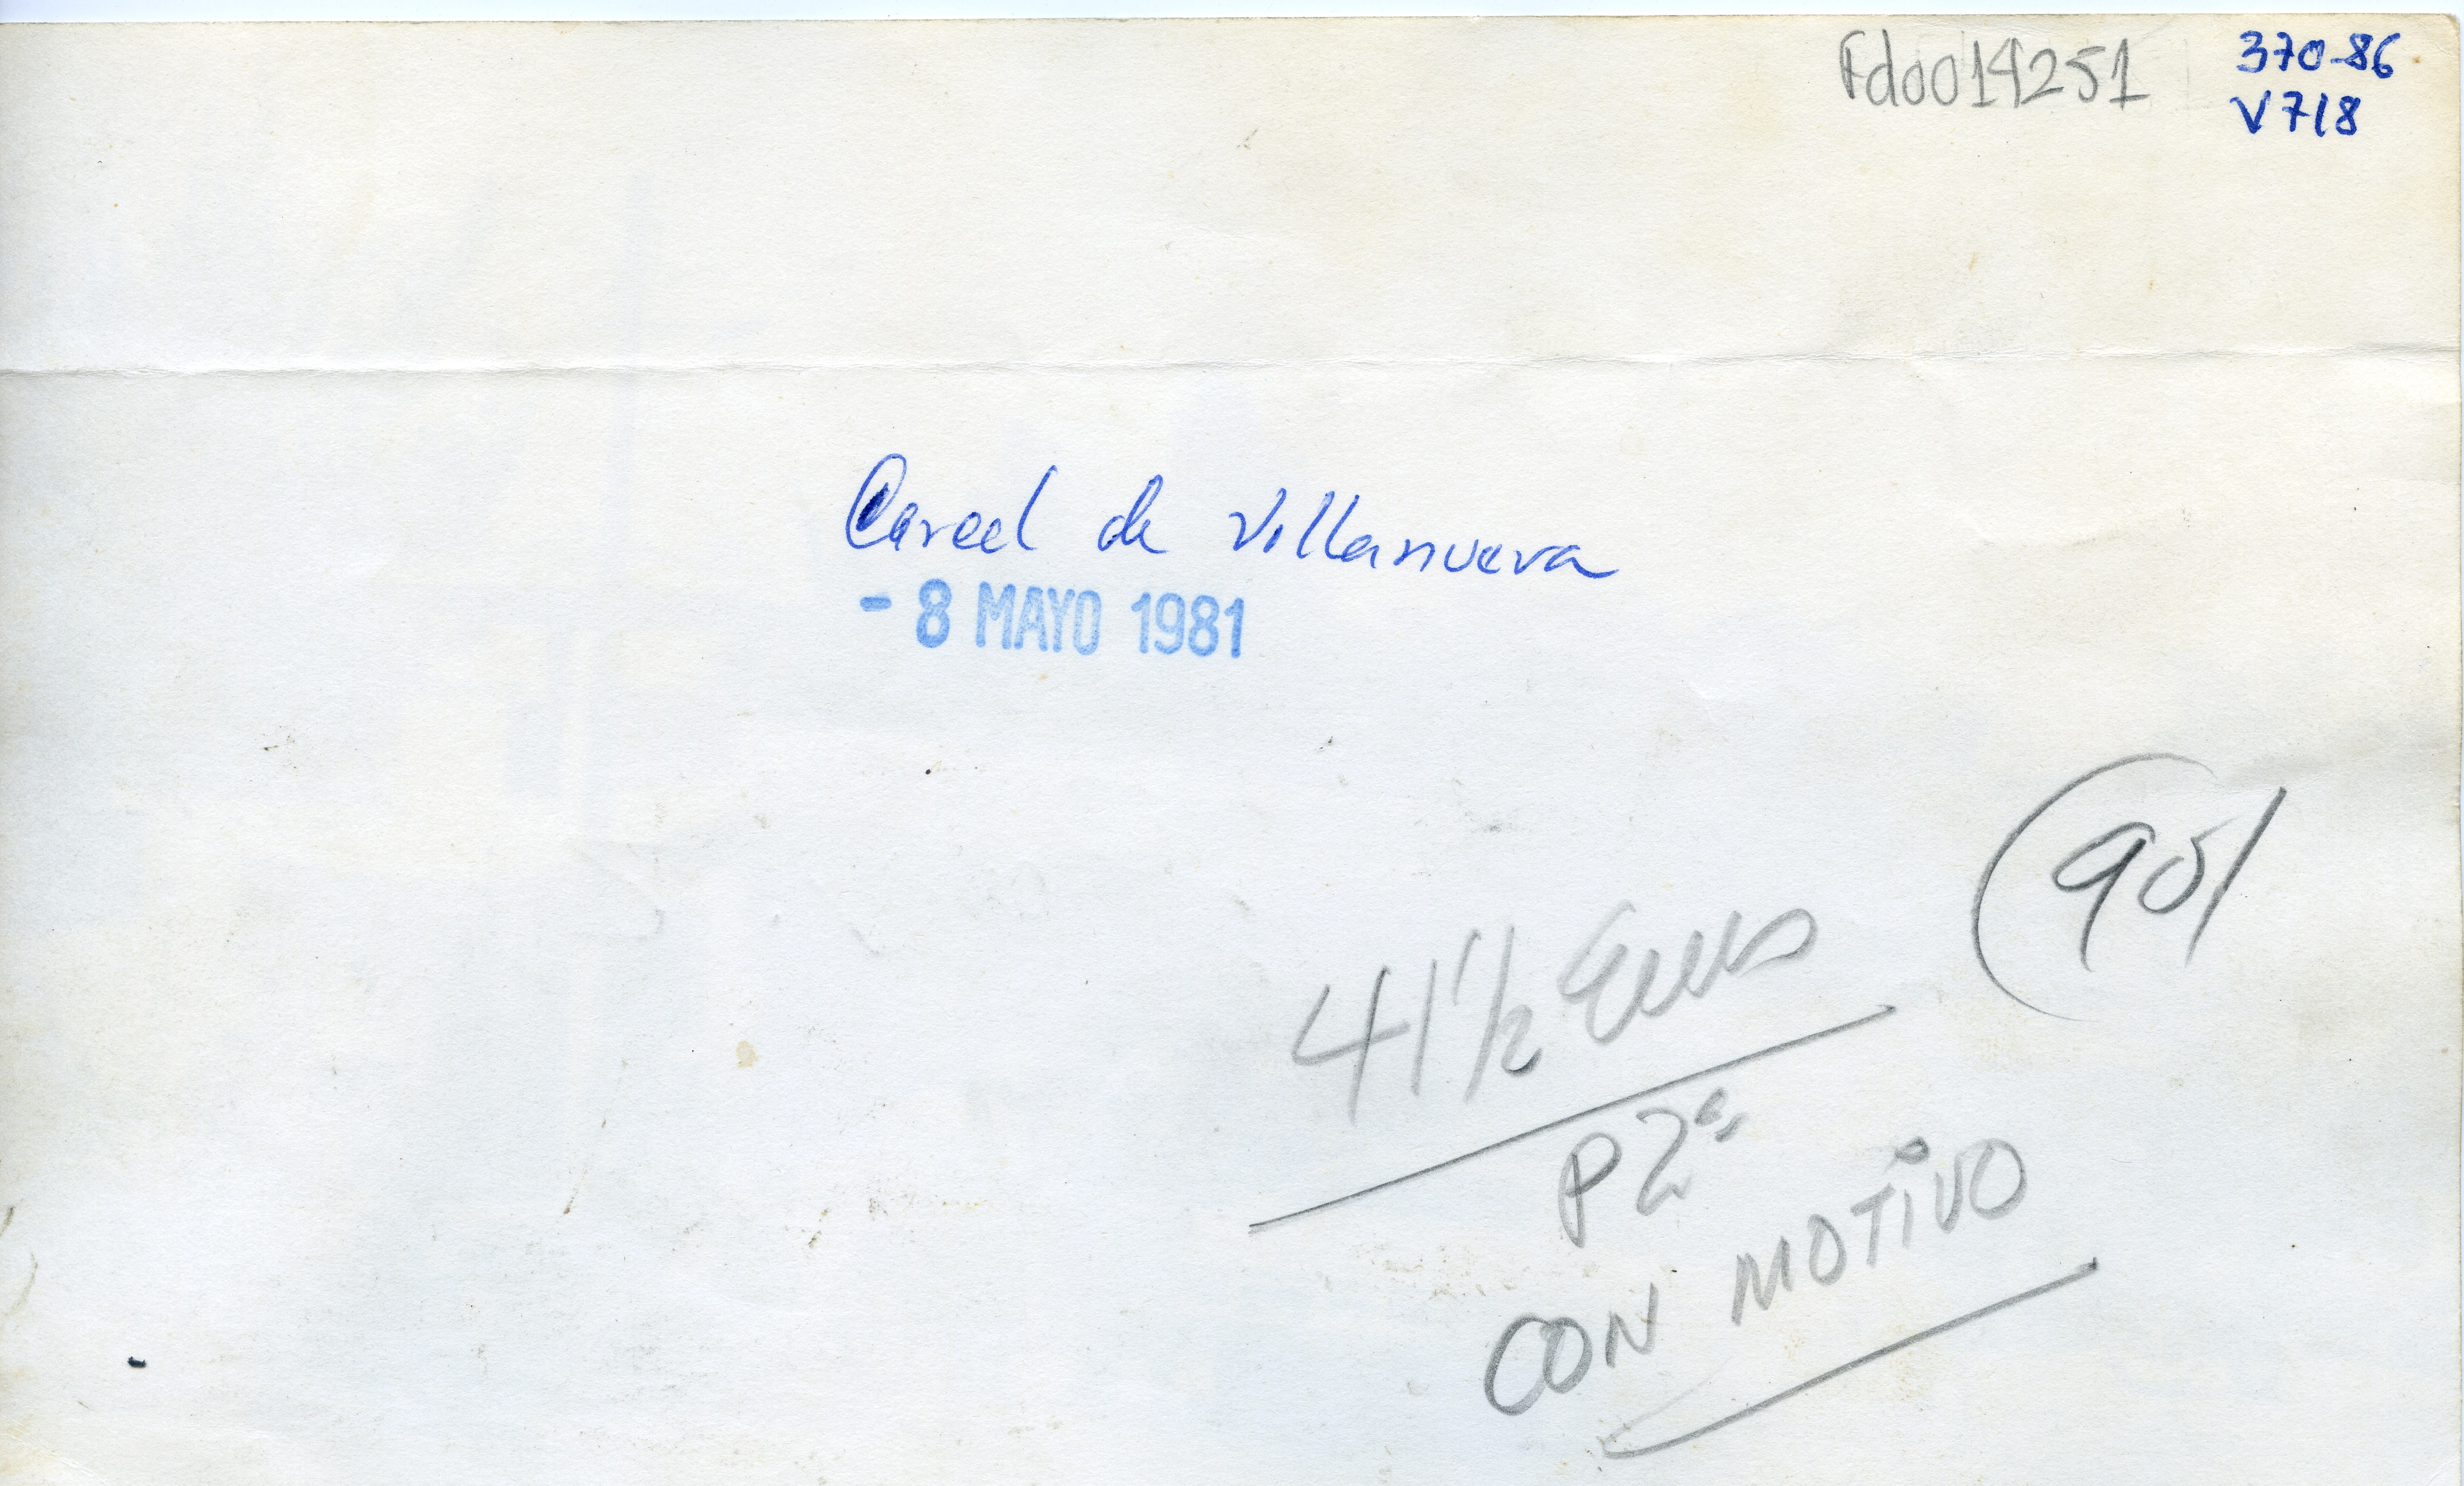 Fdo014251
370-86
V718
Carcel de Villanueva
- 8 MAYO 1981
90
41 1/2 Ems
P 2ª
CON MOTIVO